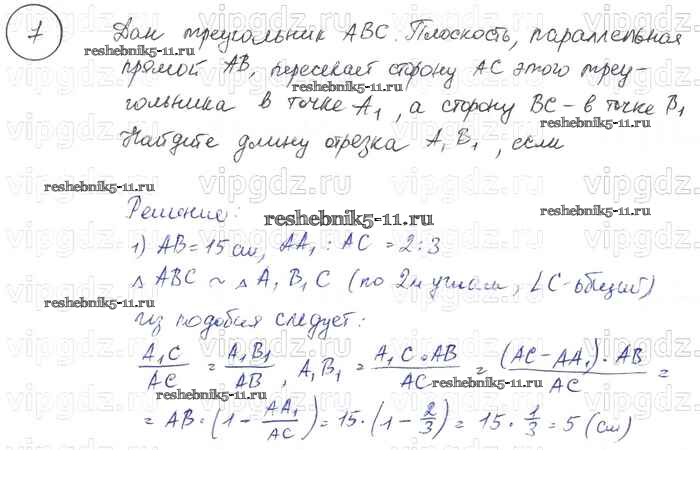 7
Дан треугольник ABC. Плоскость, параллельная
прямой AB, пересекает сторону AC этого треу-
гольника в точке A₁, а сторону BC – в точке B₁
Найдите длину отрезка A₁B₁, если
Решение:
1) AB = 15 см, AA₁ : AC = 2:3
Δ ABC ~ Δ A₁B₁C (по 2м углам, ∠C-общий)
из подобия следует:
A₁C/AC = A₁B₁/AB, A₁B₁ = A₁C·AB/AC = (AC-AA₁)·AB/AC =
= AB·(1 - AA₁/AC) = 15·(1 - 2/3) = 15·1/3 = 5 (см)
reshebnik5-11.ru
vipgdz.ru